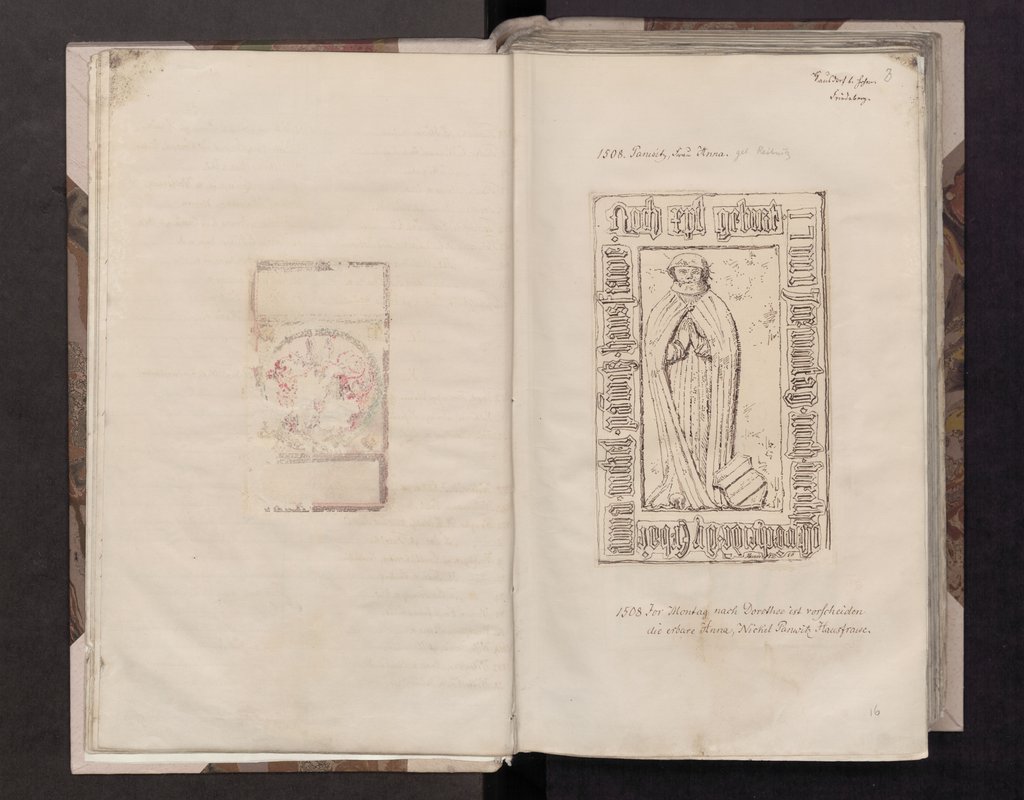 8
Friedeberg.
1508. Panwitz, Frau Anna. geb Reibnitz
Noch xpi geburt
Jor montag noch dorothe
ist vorschiden dy erber
anna nickel panwitz hausfrawe
1508 Jor Montag nach Dorothee ist vorscheiden
die erbare Anna, Nickel Panwitz Hausfrawe.
16